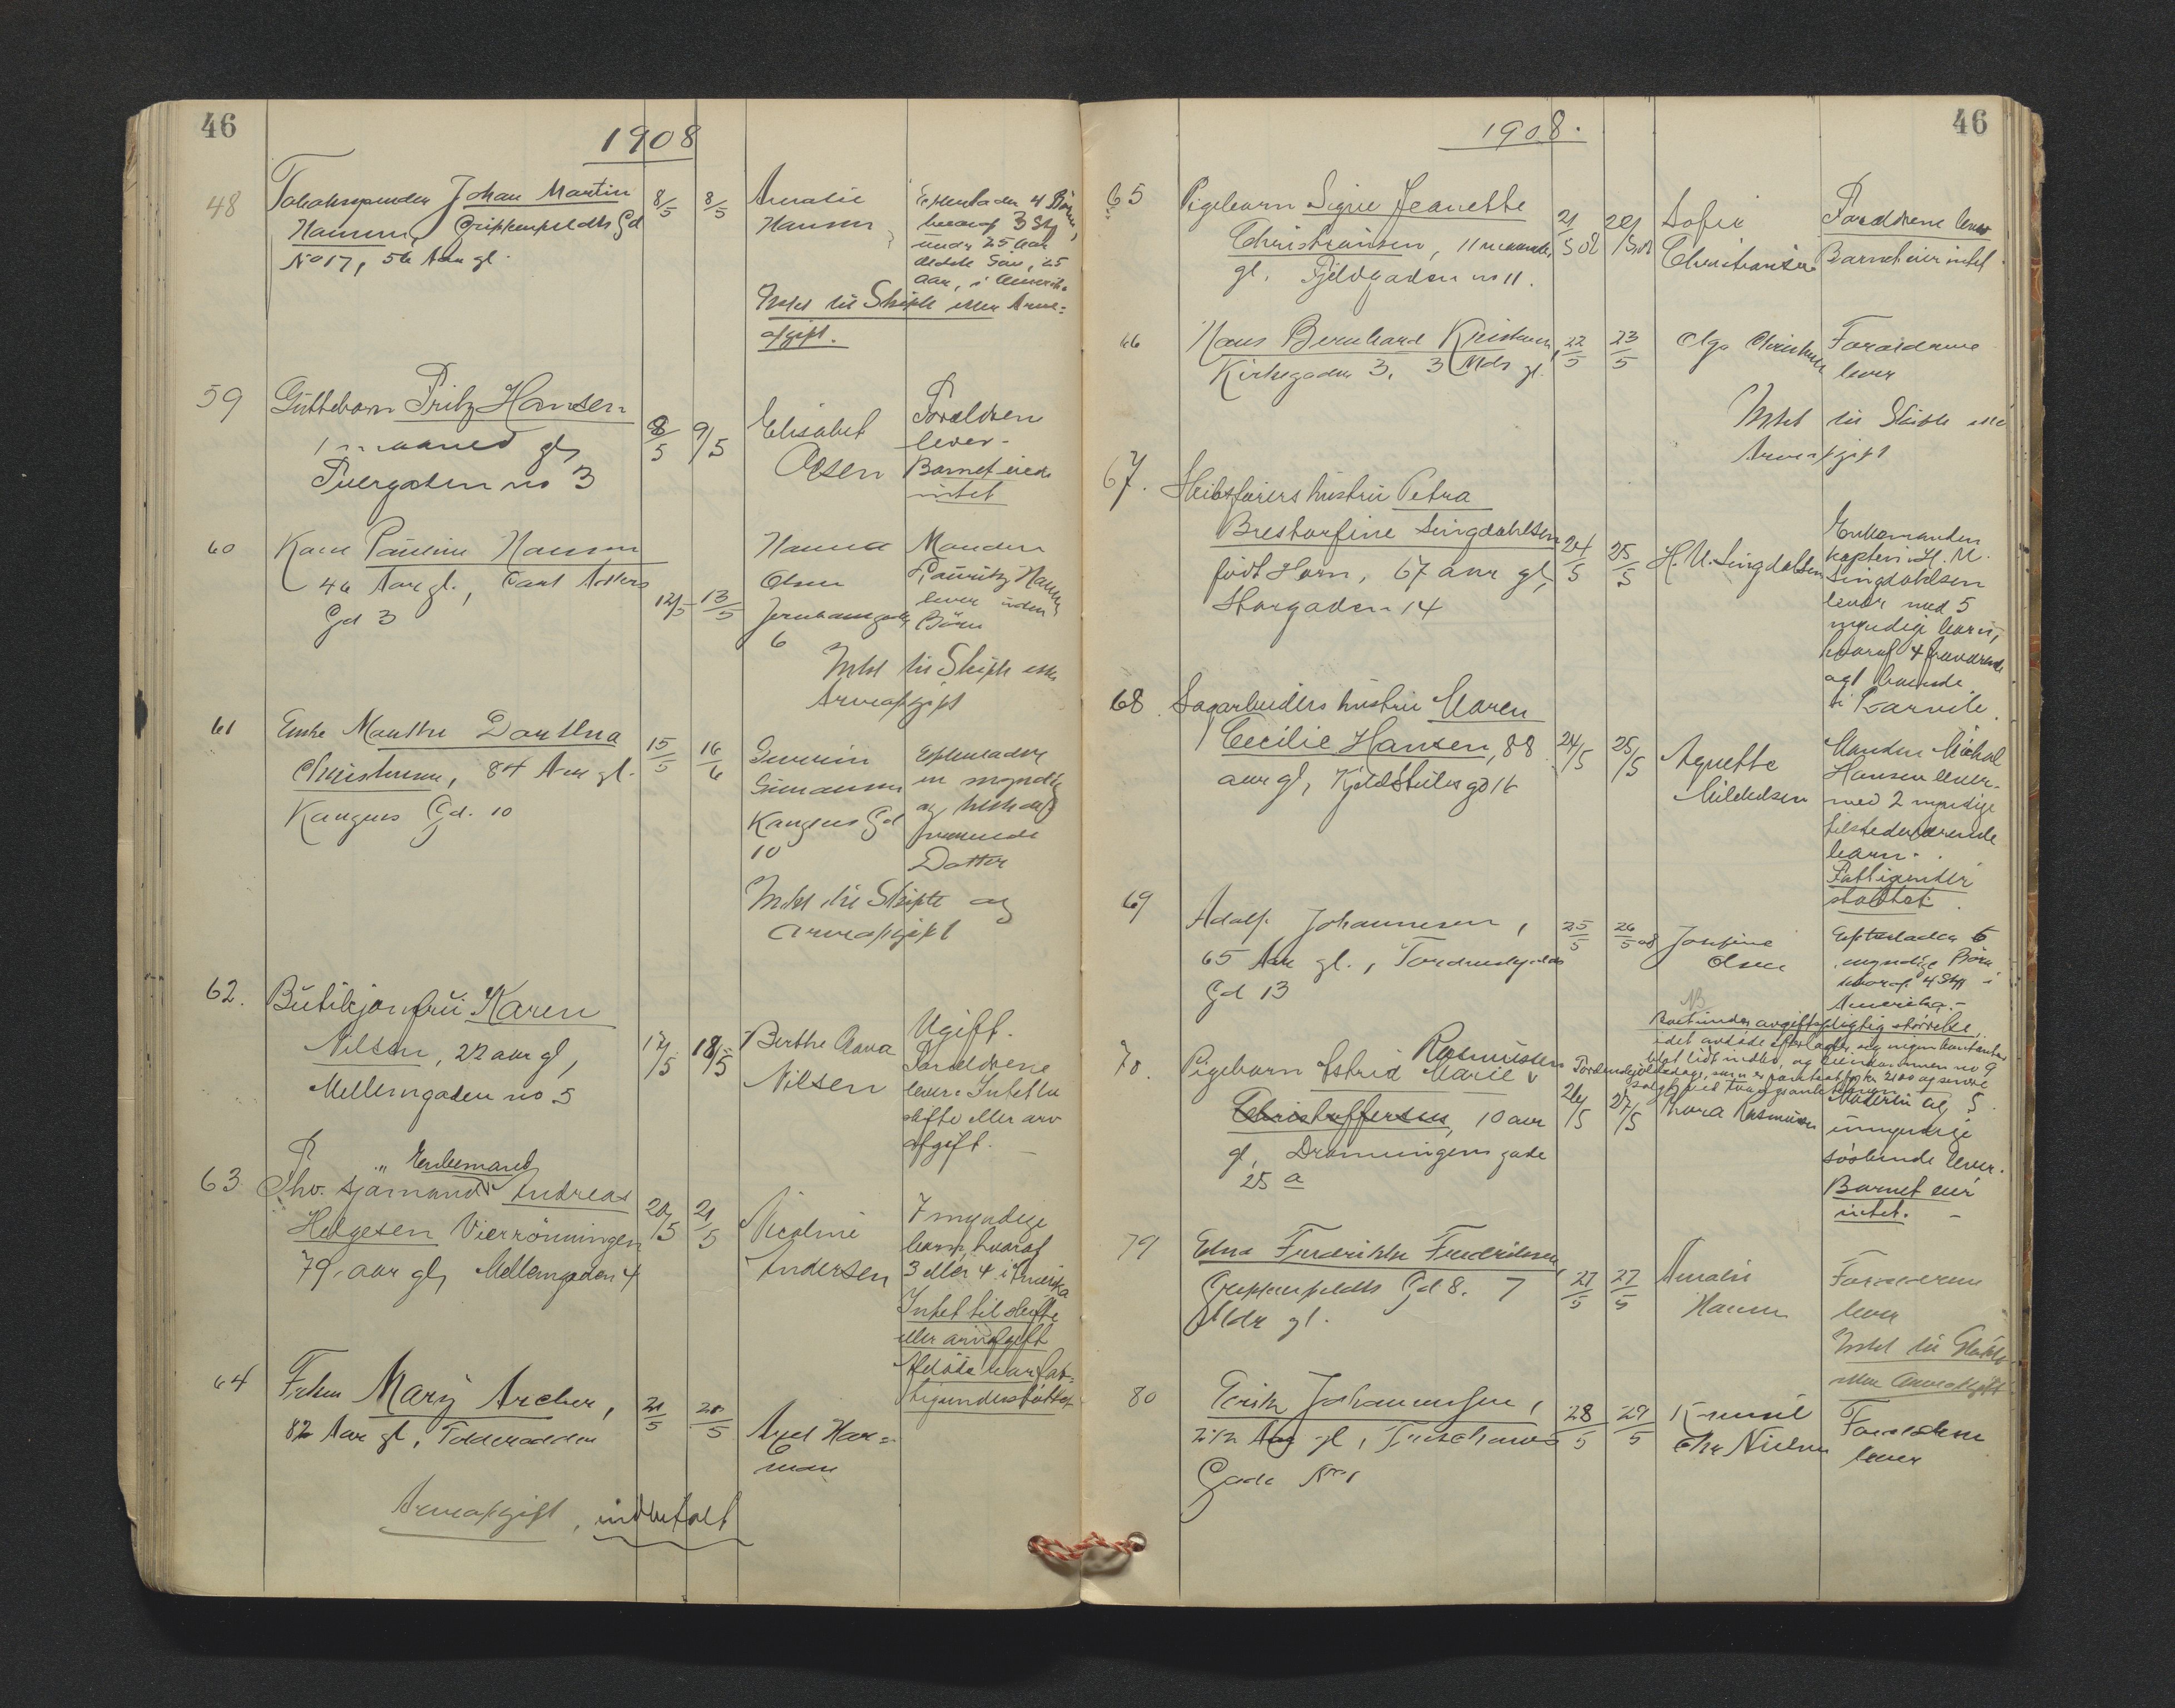 46
1908
48
Tobakspinder Johan Martin
Hansen, Griffenfeldts Gd
No 17, 56 Aar gl.
8/5
8/5
Amalie
Hansen
Efterlader 4 Børn,
hvoraf 3 Stk
under 25 Aar
ældste Søn, 25
Aar, i Amerika
Intet til Skifte eller Arve=
afgift.
59
Guttebarn Fritz Hansen
1 maaned gl,
Tuergaden no 3
8/5
9/5
Elisabet
Olsen
Forældrene
lever.
Barnet eiede
intet
60
Kone Pauline Hansen
46 Aar gl., Carl Adlers
Gd 3
12/5
13/5
Hanna
Olsen
6
Manden
Lauritz Hansen
lever uden
Børn
Intet til Skifte eller
Arveafgift
61
Enke Marthe Dorthea
Christensen, 84 Aar gl.
Kauguns Gd. 10
15/5
16/6
Gunerius
Gunderson
Kauguns Gd
10
Efterlader
en myndig
og tilstede
Datter
Intet til Skifte og
Arveafgift
62.
Butikjomfru Karen
Nilsen, 22 aar gl,
Mellemgaden no 5
17/5
18/5
Berthe Anna
Nilsen
Ugift.
Forældrene
lever. Intet til
skifte eller arv
afgift.
63
Fhv. sjømand Enkemand Andreas
Helgesen Vierrönningen
79 aar gl, Mellemgaden 4
20/5
21/5
Nicoline
Andersen
7 myndige
barn, hvoraf
3 eller 4 i Amerika
Intet til skifte
eller arveafgift
Afdøde var fat=
tigunderstøttet
64
Frøken Mary Archer,
82 Aar gl, Tolderodden
21/5
21/5
Axel Har=
man
Arveafgift, indbetalt
1908.
46
65
Pigebarn Signe Jeanette
Christiansen, 11 maaneder
gl. Fjeldgaden no 11.
21/5 08
22/5 08
Sofie
Christiansen
Forældrene lever
Barnet eier intet
66
Hans Bernhard Kristiansen,
Kirkegaden 3, 3 Mdr gl.
22/5
23/5
Olga Christiansen
Forældrene
lever
Intet til Skifte eller
Arveafgift
67.
Skibsførers hustru Petra
Singdahlsen
født Horn, 67 aar gl,
Storgaden 14
24/5
25/5
H. M. Singdahlsen
Enkemanden
kaptein H. M.
Singdahlsen
lever med 5
myndige barn,
hvoraf 4 fraværende
og 1 boende
i Larvik.
68
Sagarbeiders hustru Maren
Cecilie Hansen, 88
aar gl,
24/5
25/5
Agnethe
Mikkelsen
Manden Mikkel
Hansen lever
med 2 myndige
tilstedeværende
barn.
Fattigunder
støttet.
69
Adolf Johannesen,
65 Aar gl., Tordenskjolds
Gd 13
25/5
26/5 08
Josefine
Olsen
Efterlader 6
myndige Børn
hvoraf 4 Stk i
Amerika.
NB
Boet under avgiftspligtig størrelse,
70.
Pigebarn Astrid Marie Rasmussen
Christoffersen, 10 aar
gl, Dronningens gade
25 a
26/5
27/5
Thora Rasmussen
Moderen og 5
umyndige
søskende lever.
Barnet eier
intet.
79
Edna Fredrikke Fredriksen,
Griffenfeldts Gd 8. 7
Mdr gl.
27/5
27/5
Amalie
Hansen
Forældrene
lever
Intet til Skifte
eller Arveafgift
80
Erik Johannessen,
2 1/2 Aar gl,
Gade No 1
28/5
29/5
Nielsen
Forældrene
lever